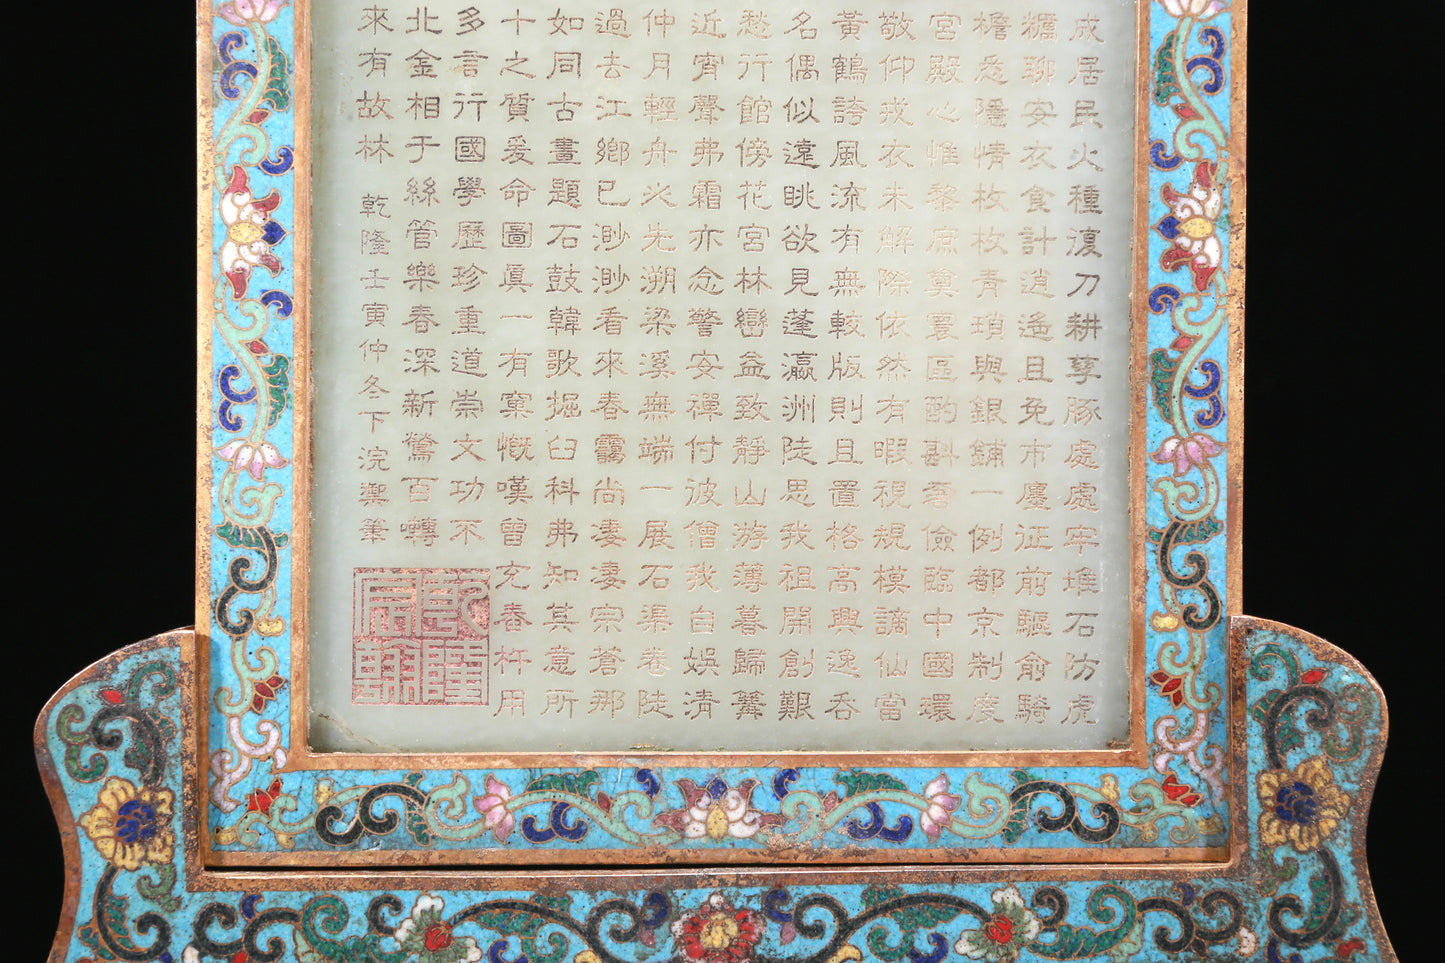 成居民火種復刀耕孳豚處處牢堆石防虎
糲聊安衣食計逍遙且免市廛征前驅俞騎
檐悉隱情枚枚青瑣與銀鋪一例都京制度
宮殿心惟黎庶奠寰區酌斟奢儉臨中國環
敬仰戎衣未解際依然有暇視規模謫仙當
黃鶴誇風流有無較版則且置格高興逸吞
名偶似遠眺欲見蓬瀛洲陡思我祖開創艱
愁行館傍花宮林巒益致靜山游薄暮歸篝
近宵聲弗霜亦念警安禪付彼僧我白娛清
仲月輕舟必先溯梁溪無端一展石渠卷陡
過去江鄉已渺渺看來春靄尚淒淒宗蒼那
如同古畫題石鼓韓歌掘臼科弗知其意所
十之質爰命圖真一有窠慨嘆曾充春杵用
多言行國學歷珍重道崇文功不
北金相于絲管樂春深新鶯百囀
來有故林 乾隆壬寅仲冬下浣御筆